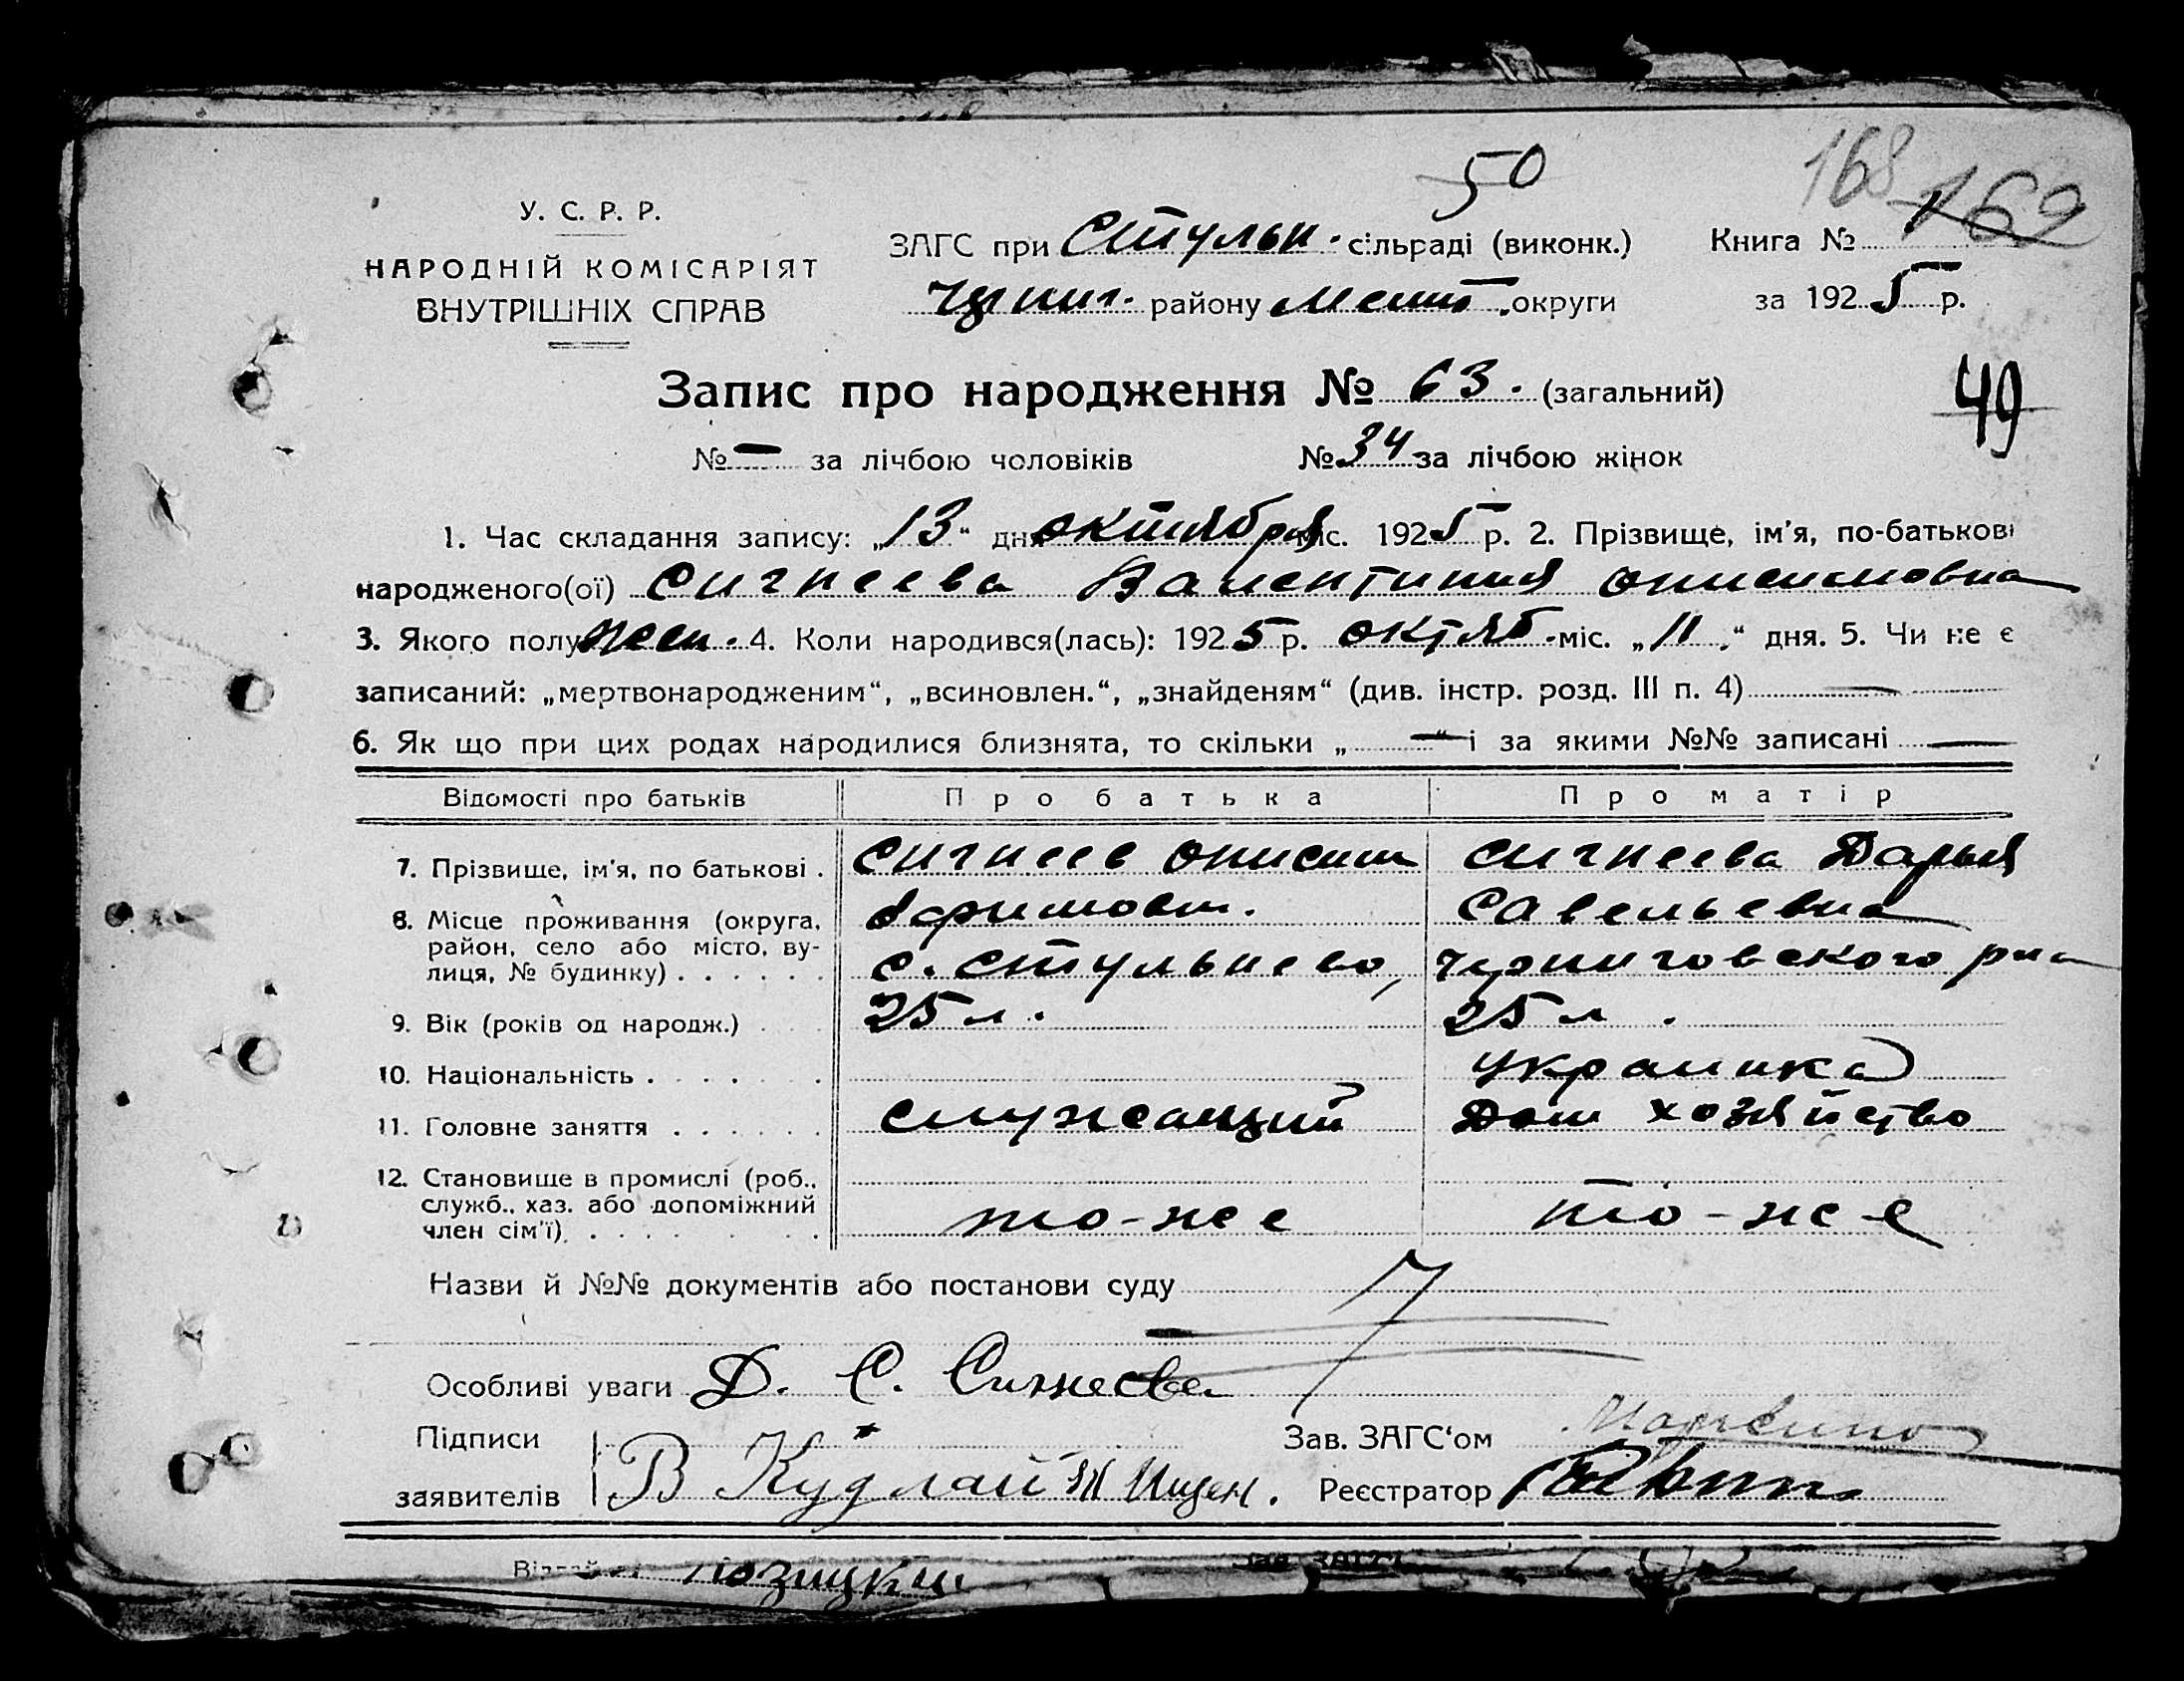 50
168 169
У. С. Р. Р.
НАРОДНІЙ КОМІСАРІЯТ
ВНУТРІШНІХ СПРАВ
ЗАГС при Стульн. сільраді (виконк.) Книга № 1
Черниг. району Мелит. округи за 1925 р.
Запис про народження № 63. (загальний)
49
№ — за лічбою чоловіків № 34 за лічбою жінок
1. Час складання запису: „13“ дня октября міс. 1925 р. 2. Прізвище, ім'я, по-батькові
народженого(ої) Сигнеева Валентиния Онисимовна
3. Якого полу жен. 4. Коли народився(лась): 1925 р. октяб. міс. „11“ дня. 5. Чи не є
записаний: „мертвонародженим“, „всиновлен.“, „знайденям“ (див. інстр. розд. III п. 4) —
6. Як що при цих родах народилися близнята, то скільки „—“ і за якими №№ записані —
Відомості про батьків Про батька Про матір
7. Прізвище, ім'я, по батькові . Сигнеев Онисим Сигнеева Дарья
8. Місце проживання (округа, Савельевна
район, село або місто, ву-
лиця, № будинку) . . . . . . с. Стульнево, Черниговского р-на
9. Вік (років од народж.) . . . 25 л. 25 л.
10. Національність . . . . . . украинка
11. Головне заняття . . . . . . служащий Дом хозяйство
12. Становище в промислі (роб.,
служб., хаз. або допоміжний
член сім'ї) . . . . . . то-же то-же
Назви й №№ документів або постанови суду
Особливі уваги Д. С. Сигнеева
Підписи Зав. ЗАГС'ом
заявителів В Кудлай Ищен. Реєстратор
Зав. ЗАГС